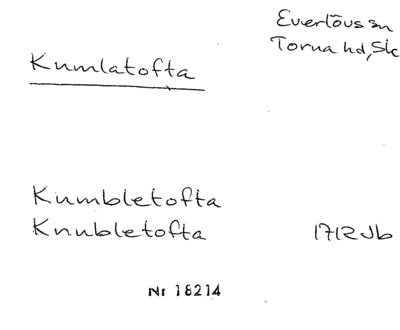 Everlövs sn
Torna hd, Sk
Kumlatofta
Kumbletofta
Knubletofta 1712 Jb
Nr 18214